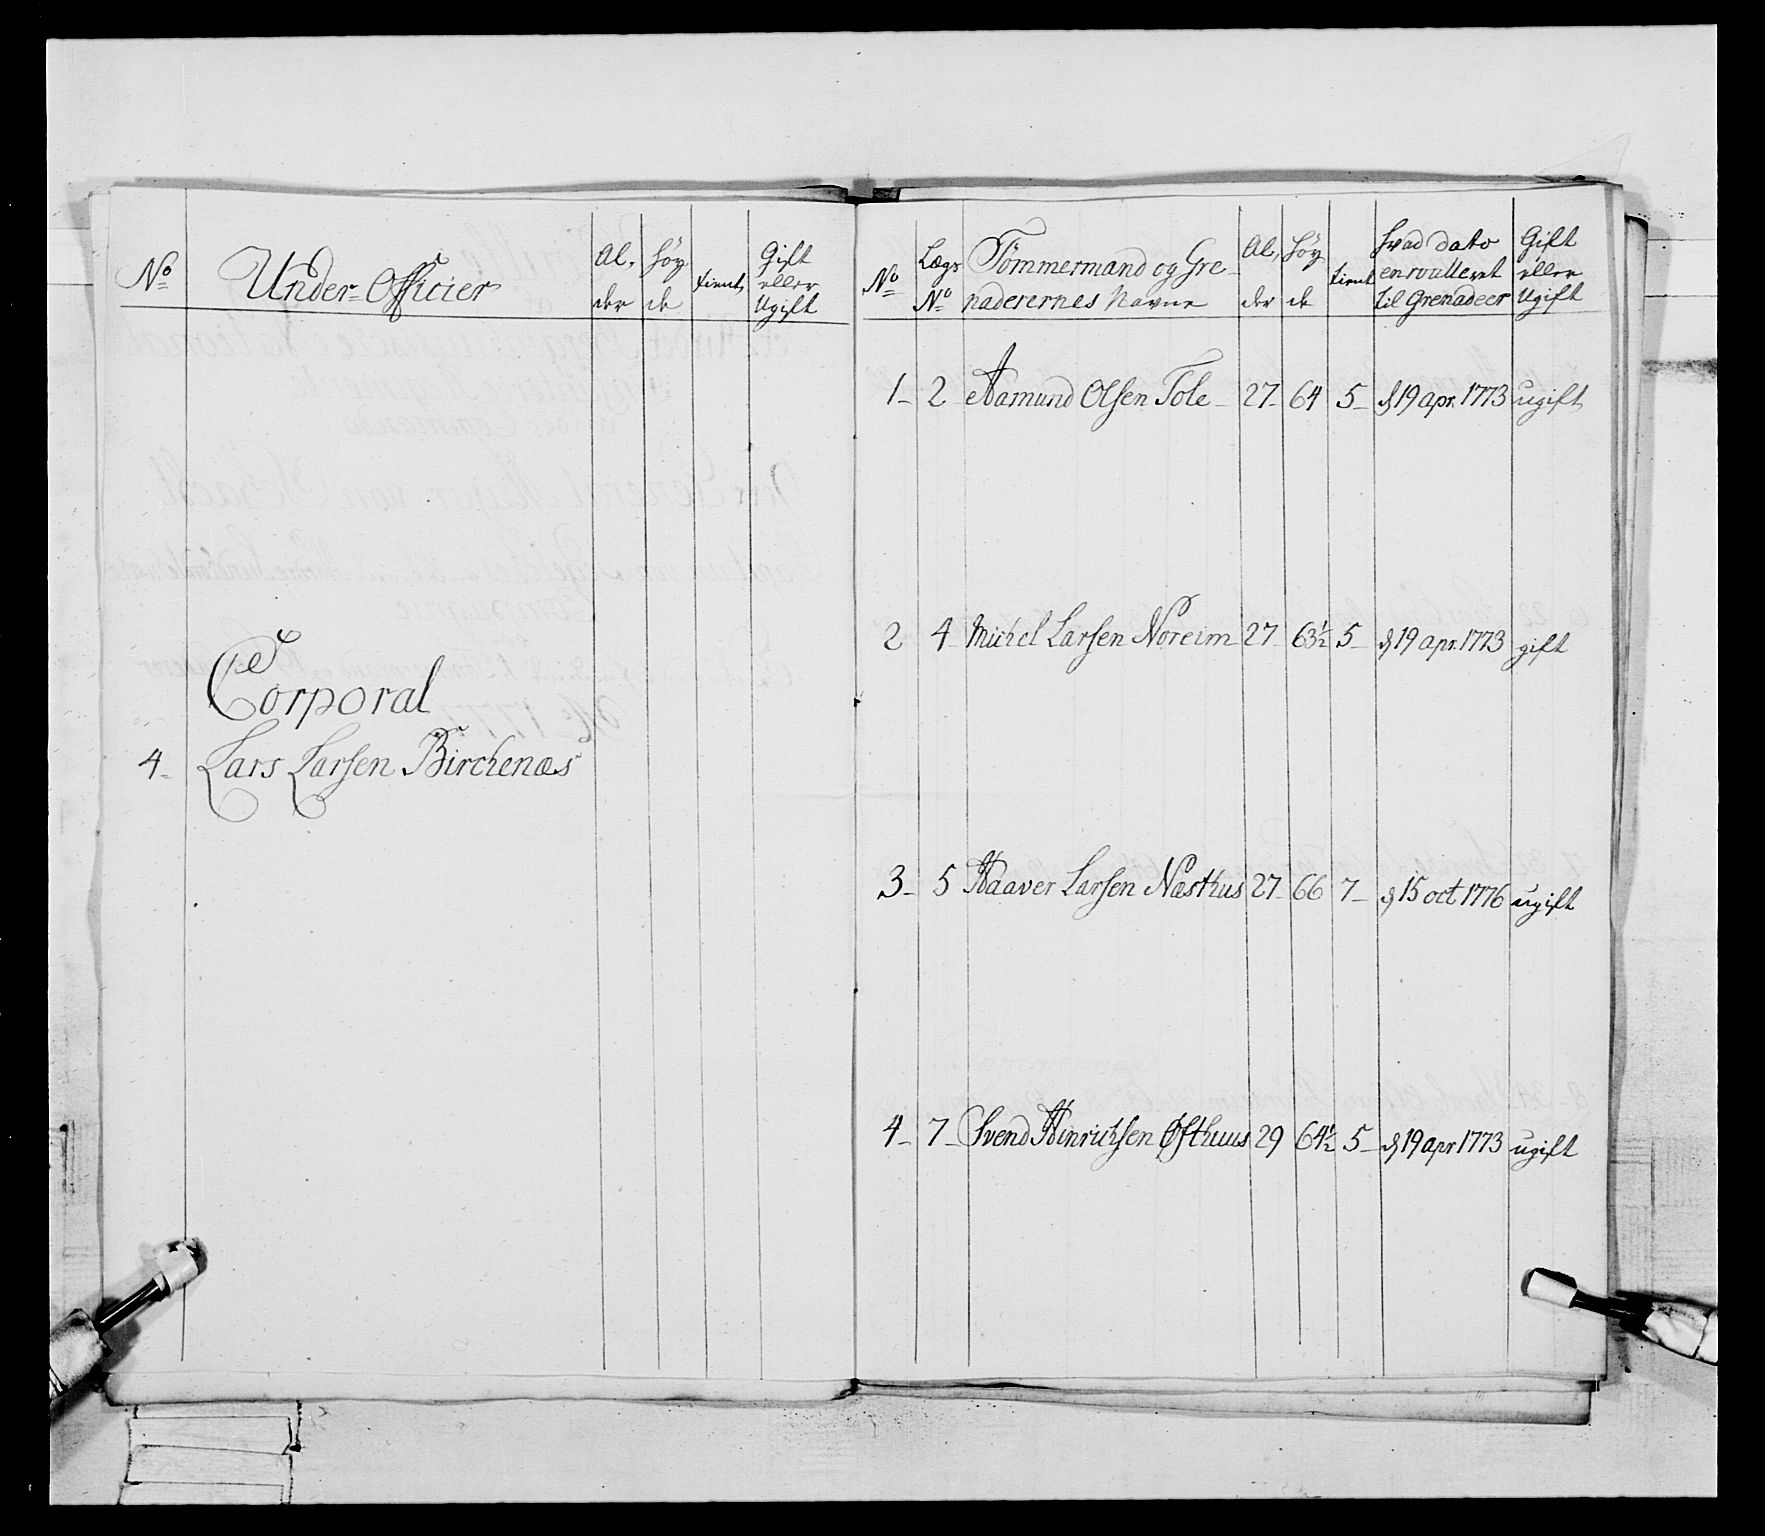 No Under-Officier Al, der Høy de tient, Gift eller Ugift
Corporal
4- Lars Larsen Birchenæs
No Lægs No Tømmermand og Gre- naderernes Navne Al, der Høy de tient hvad dato enroulleret til Grenadeer Gift eller Ugift
1- 2 Aamund Olsen Tole- 27- 64 5- d 19 apr. 1773 ugift
2 4 Michel Larsen Noreim 27- 63½ 5- d 19 apr. 1773 gift
3- 5 Haaver Larsen Næsthus 27- 66 7- d 15 oct 1776 ugift
4- 7- Svend Hinrichsen Østhuus 29 64½ 5- d 19 apr 1773 ugift